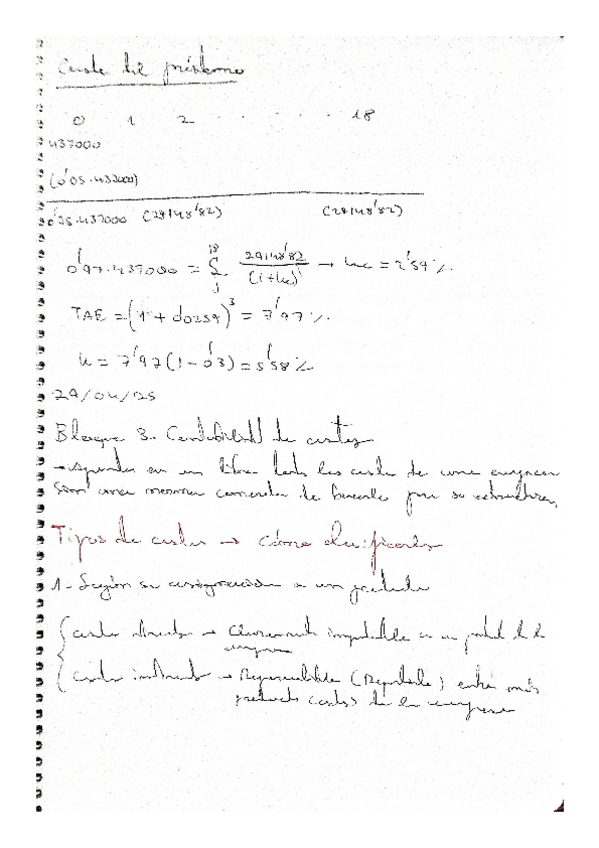 Coste del préstamo
0 1 2 . . . . . 18
437000
(0'05·437000)
0'95·437000 (29148'82) (29148'82)
0'97·437000 = Σ 18 1 29148'82 / (1+kc)^i → kc = 2'59 %
TAE = (1 + 0'0259)^3 = 7'97 %
k = 7'97 (1 - 0'3) = 5'58 %
29/04/25
Bloque 3. Contabilidad de costes
→ Apuntar en un libro todos los costes de una empresa
Son una manera de por su
Tipos de costes → cómo clasificarlos
1- Según su asignación a un producto
costes directos → Claramente imputable a un de la
empresa
costes indirectos → (Repartible) entre más
productos costes de la empresa